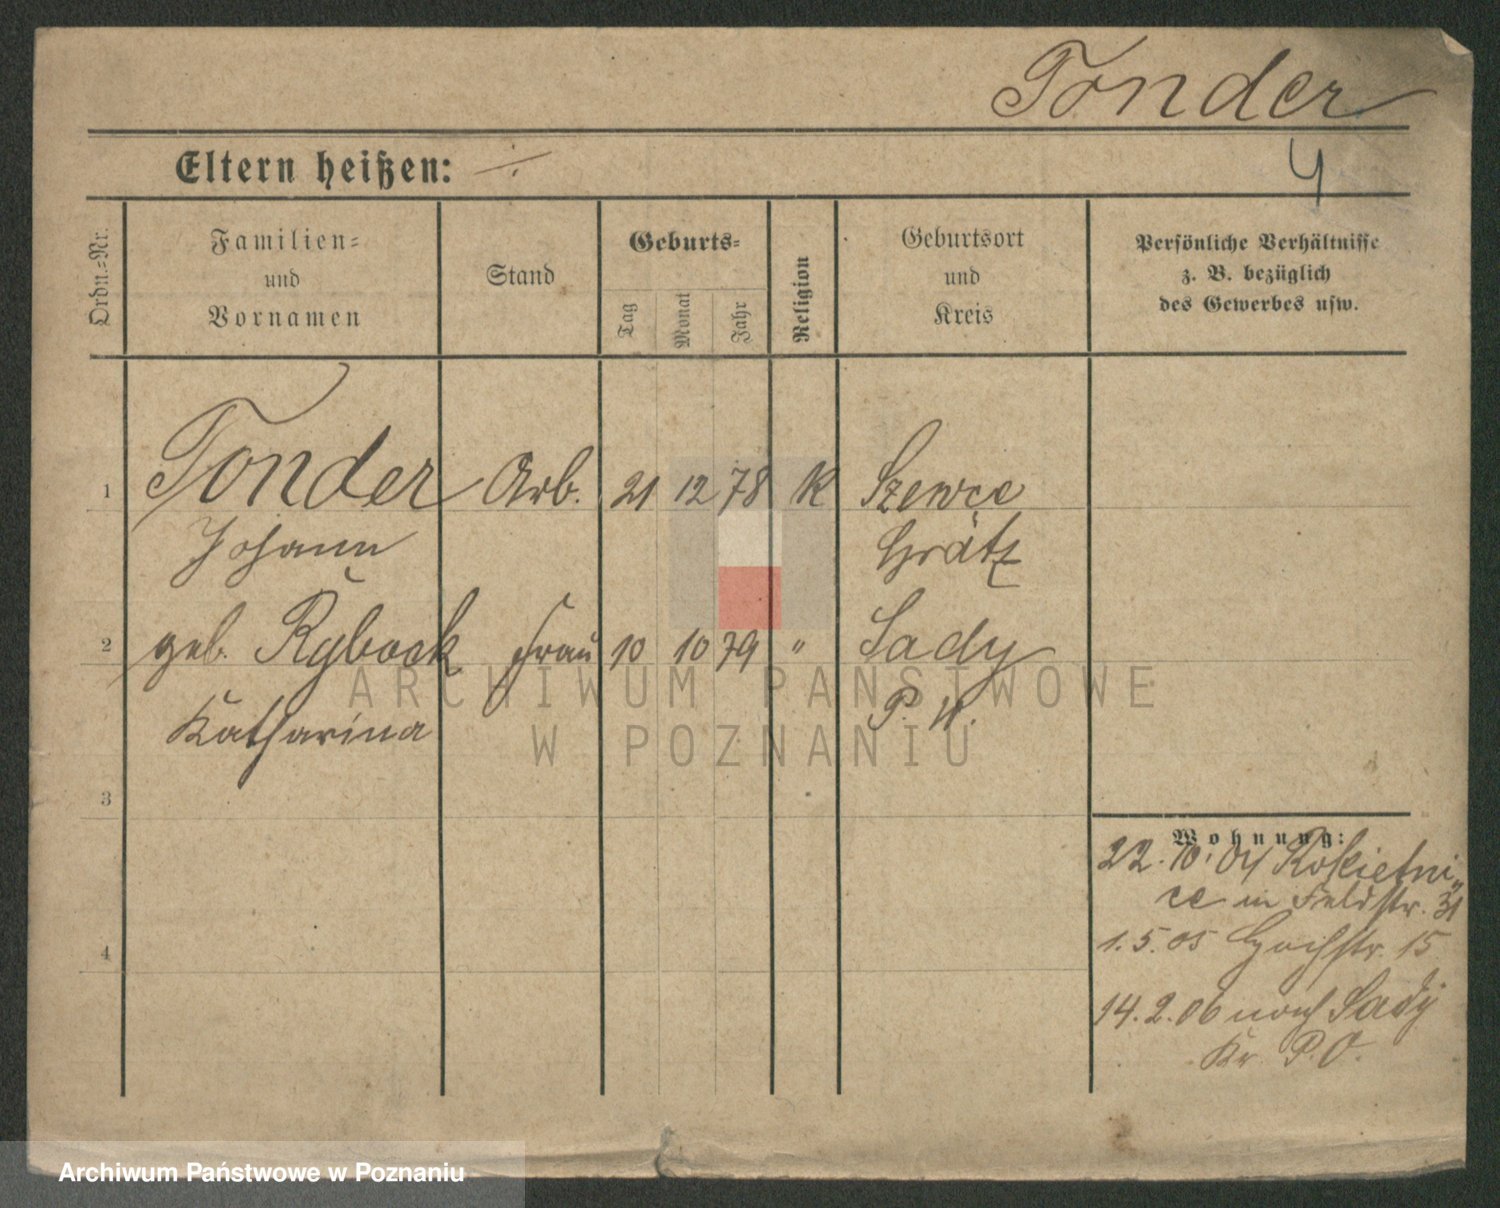 Tonder
4
Eltern heißen: ÷
Ordn.-Nr.
Familien-
und
Vornamen
Stand
Geburts-
Tag
Monat
Jahr
Religion
Geburtsort
und
Kreis
Persönliche Verhältnisse
z. B. bezüglich
des Gewerbes usw.
1 Tonder Arb. 21 12 78 K Szewce
Johann Grätz
2 geb. Ryback Frau 10 10 79 " Sady
Katharina P. W.
3
4
Wohnung:
22. 10. 04 Rokietni-
ce in Feldstr. 31
1. 5. 05 Hochstr. 15
14. 2. 06 nach Sady
Kr. P. O.
ARCHIWUM PAŃSTWOWE
W POZNANIU
Archiwum Państwowe w Poznaniu